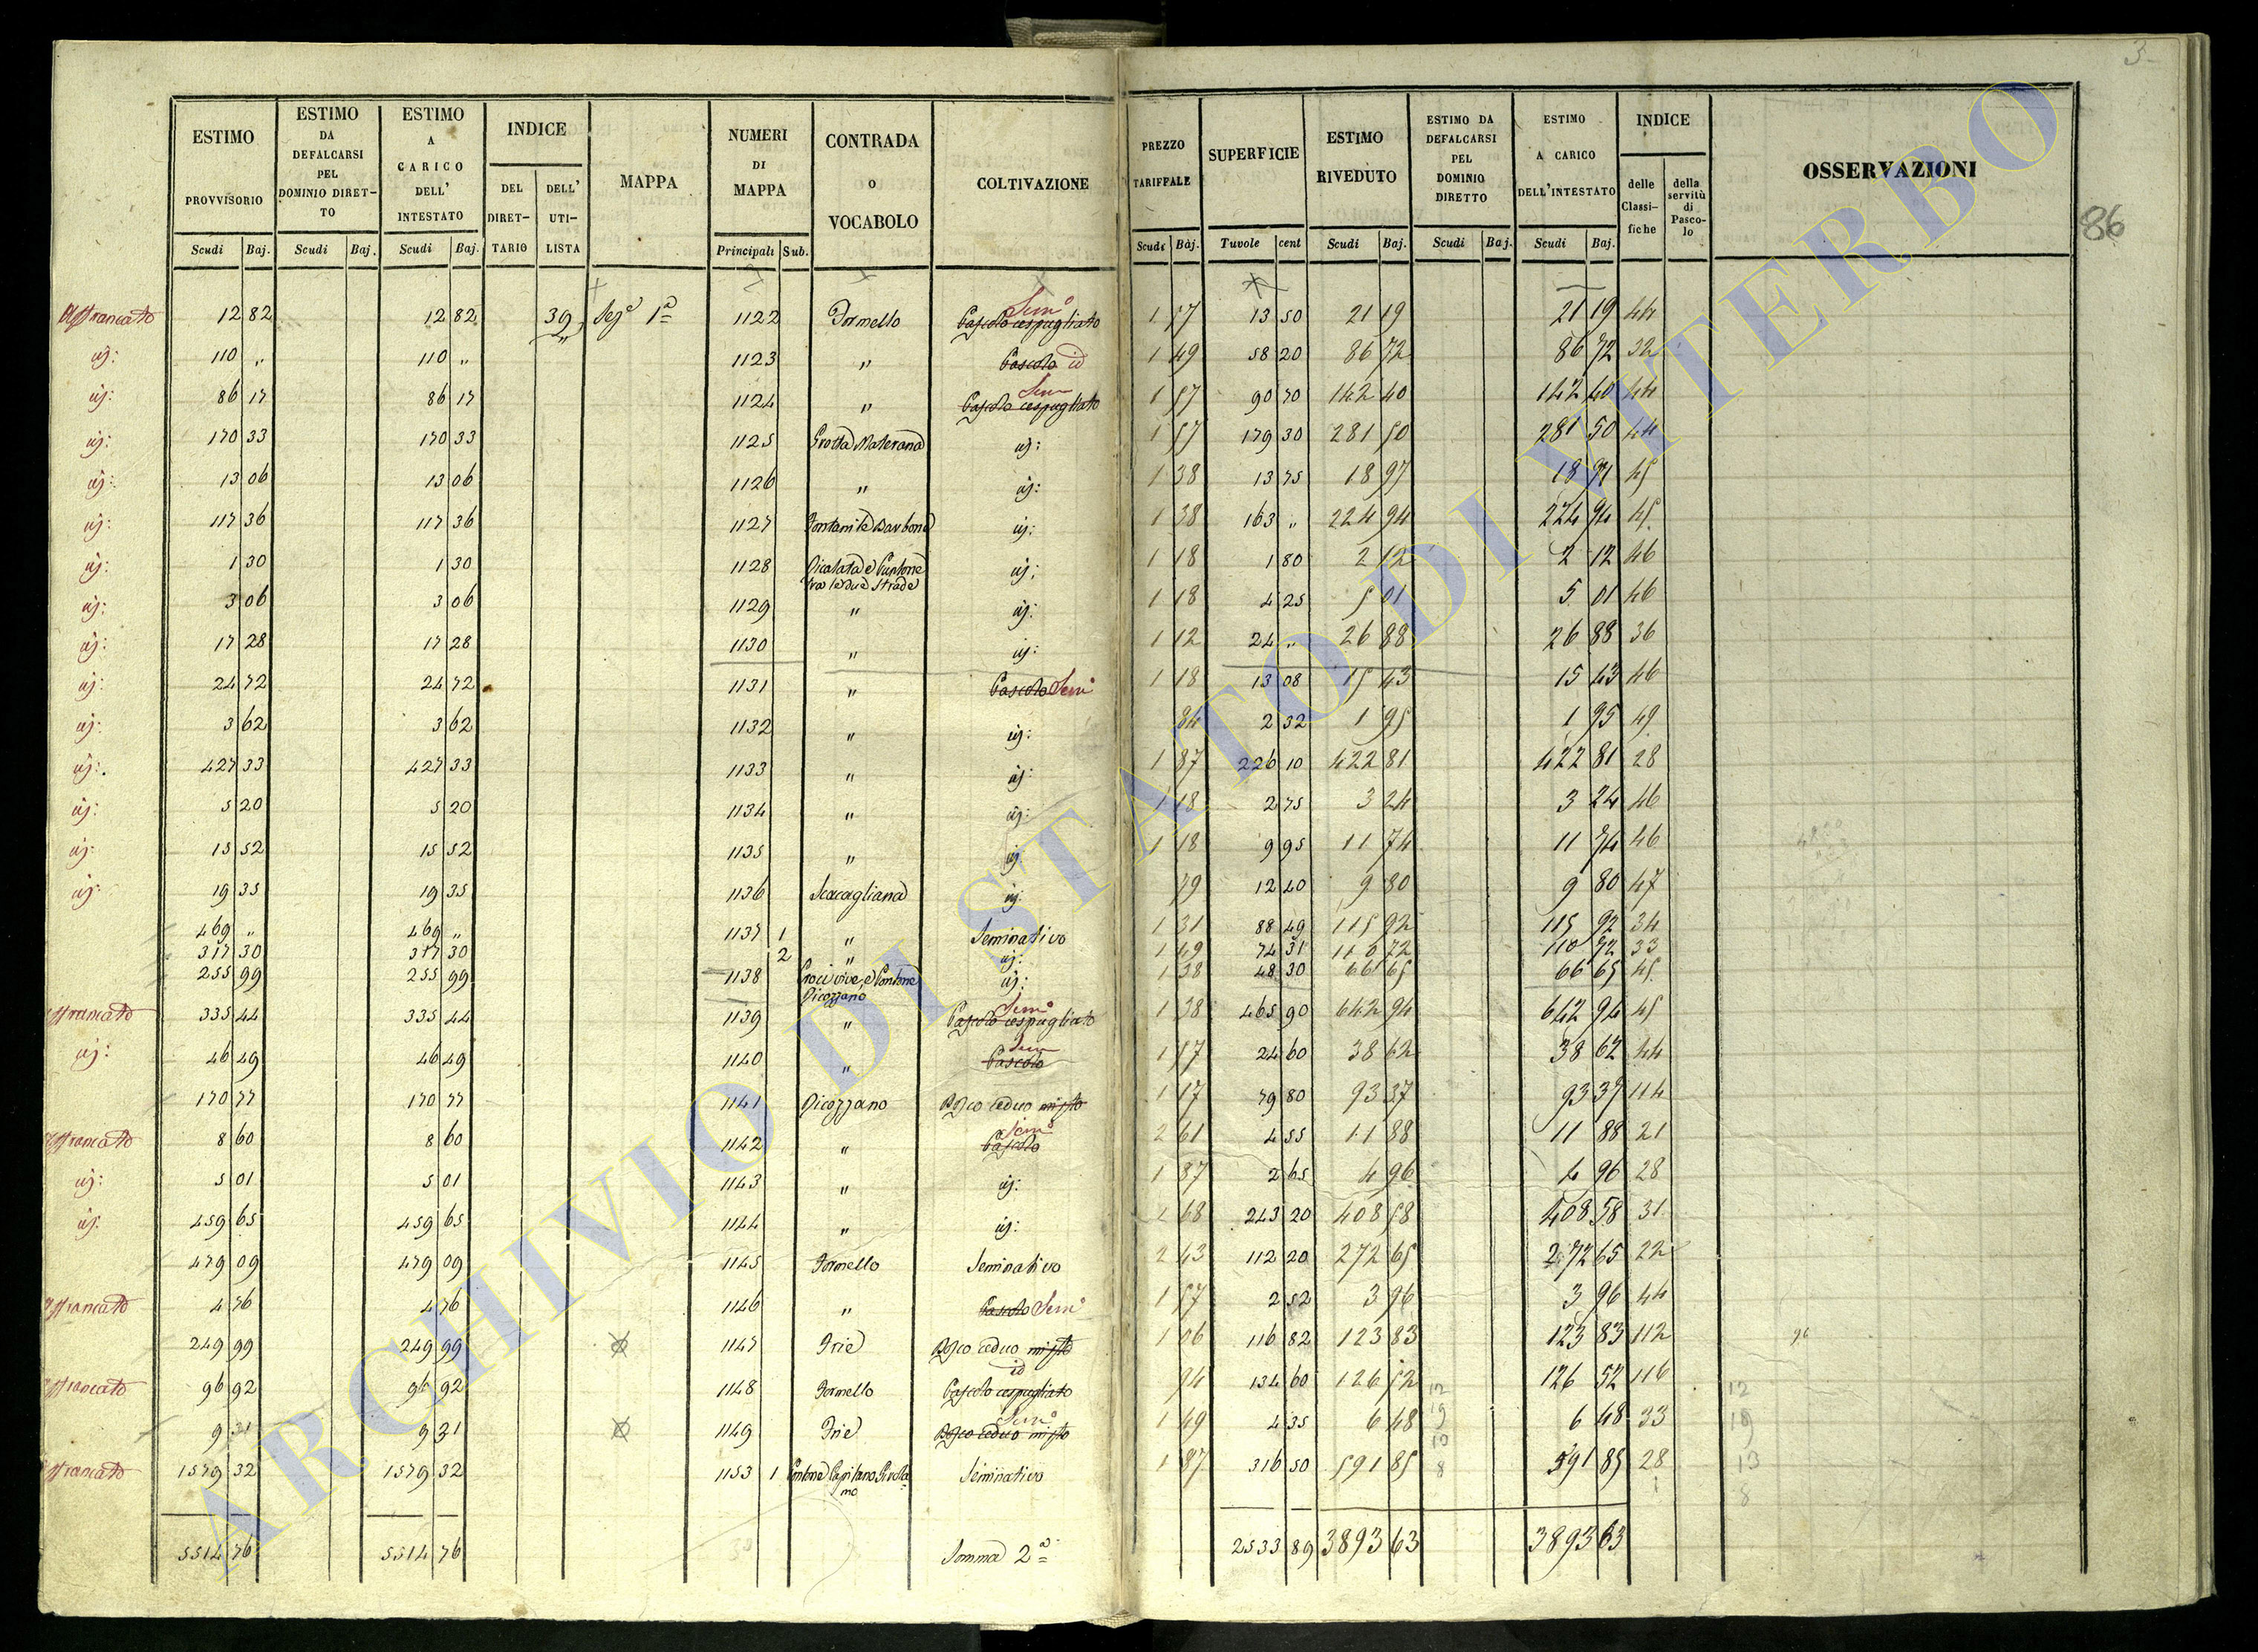 3
86
ESTIMO PROVVISORIO | ESTIMO DA DEFALCARSI PEL DOMINIO DIRETTO | ESTIMO A CARICO DELL' INTESTATO | INDICE | MAPPA | NUMERI DI MAPPA | CONTRADA O VOCABOLO | COLTIVAZIONE | PREZZO TARIFFALE | SUPERFICIE | ESTIMO RIVEDUTO | ESTIMO DA DEFALCARSI PEL DOMINIO DIRETTO | ESTIMO A CARICO DELL'INTESTATO | INDICE | OSSERVAZIONI
DEL DIRETTARIO | DELL' UTILISTA | delle Classifiche | della servitù di Pascolo
Scudi | Baj. | Scudi | Baj. | Scudi | Baj. | Principali | Sub. | Scudi | Baj. | Tavole | cent | Scudi | Baj. | Scudi | Baj. | Scudi | Baj.
Affrancato 12 82 12 82 39 Seze 1a 1122 Formello Pascolo cespugliato Semo 1 57 13 50 21 19 21 19 44
id: 110 " 110 " 1123 " Pascolo id 1 49 58 20 86 72 86 72 32
id: 86 17 86 17 1124 " Pascolo cespugliato Sem 1 57 90 70 142 40 142 40 44
id: 170 33 170 33 1125 Grotta Materana id: 1 57 179 30 281 50 281 50 44
id: 13 06 13 06 1126 " id: 1 38 13 75 18 97 18 97 45
id: 117 36 117 36 1127 id: 1 38 163 " 224 94 224 94 45
id: 1 30 1 30 1128 id: 1 18 1 80 2 12 2 12 46
tra le due strade
id: 3 06 3 06 1129 " id: 1 18 4 25 5 01 5 01 46
id: 17 28 17 28 1130 " id: 1 12 24 " 26 88 26 88 36
id: 24 72 24 72 1131 " Pascolo Semo 1 18 13 08 15 43 15 43 46
id: 3 62 3 62 1132 " id: 84 2 32 1 95 1 95 49
id: 427 33 427 33 1133 " id: 1 87 226 10 422 81 422 81 28
id: 5 20 5 20 1134 " id: 1 18 2 75 3 24 3 24 46
id: 15 52 15 52 1135 " id: 1 18 9 95 11 74 11 74 46
id: 19 35 19 35 1136 Scacagliana id: 79 12 40 9 80 9 80 47
469 " 469 " 1137 1 " Seminativo 1 31 88 49 115 92 115 92 34
317 30 317 30 2 " id: 1 49 74 31 110 72 110 72 33
255 99 255 99 1138 id: 1 38 48 30 66 65 66 65 45
Picozzano
Affrancato 335 44 335 44 1139 " Pascolo cespugliato Semo 1 38 465 90 642 94 642 94 45
id: 46 49 46 49 1140 " Pascolo Sem 1 57 24 60 38 62 38 62 44
170 77 170 77 1141 Picozzano Bosco ceduo misto 1 17 79 80 93 37 93 37 114
Affrancato 8 60 8 60 1142 " Pascolo Semo 2 61 4 55 11 88 11 88 21
id: 5 01 5 01 1143 " id: 1 87 2 65 4 96 4 96 28
id: 459 65 459 65 1144 " id: 1 68 243 20 408 58 408 58 31
479 09 479 09 1145 Formello Seminativo 2 43 112 20 272 65 272 65 22
Affrancato 4 76 4 76 1146 " Pascolo Semo 1 57 2 52 3 96 3 96 44
249 99 249 99 1147 Prie Bosco ceduo misto 1 06 116 82 123 83 123 83 112
Affrancato 96 92 96 92 1148 Formello Pascolo cespugliato id 94 134 60 126 52 126 52 116
9 31 9 31 1149 Prie Bosco ceduo misto Semo 1 49 4 35 6 48 6 48 33
Affrancato 1579 32 1579 32 1153 1 Seminativo 1 87 316 50 591 85 591 85 28
5514 76 5514 76 Somma 2a 2533 89 3893 63 3893 63
12 19 13 8
ARCHIVIO DI STATO DI VITERBO